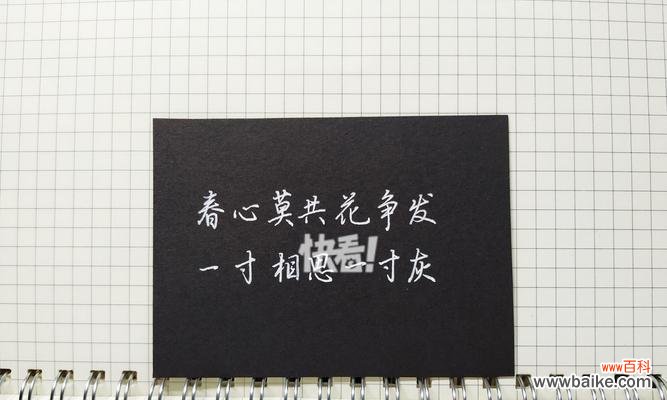 春心莫共花争发
一寸相思一寸灰
快看!
www百科
www.baike.com